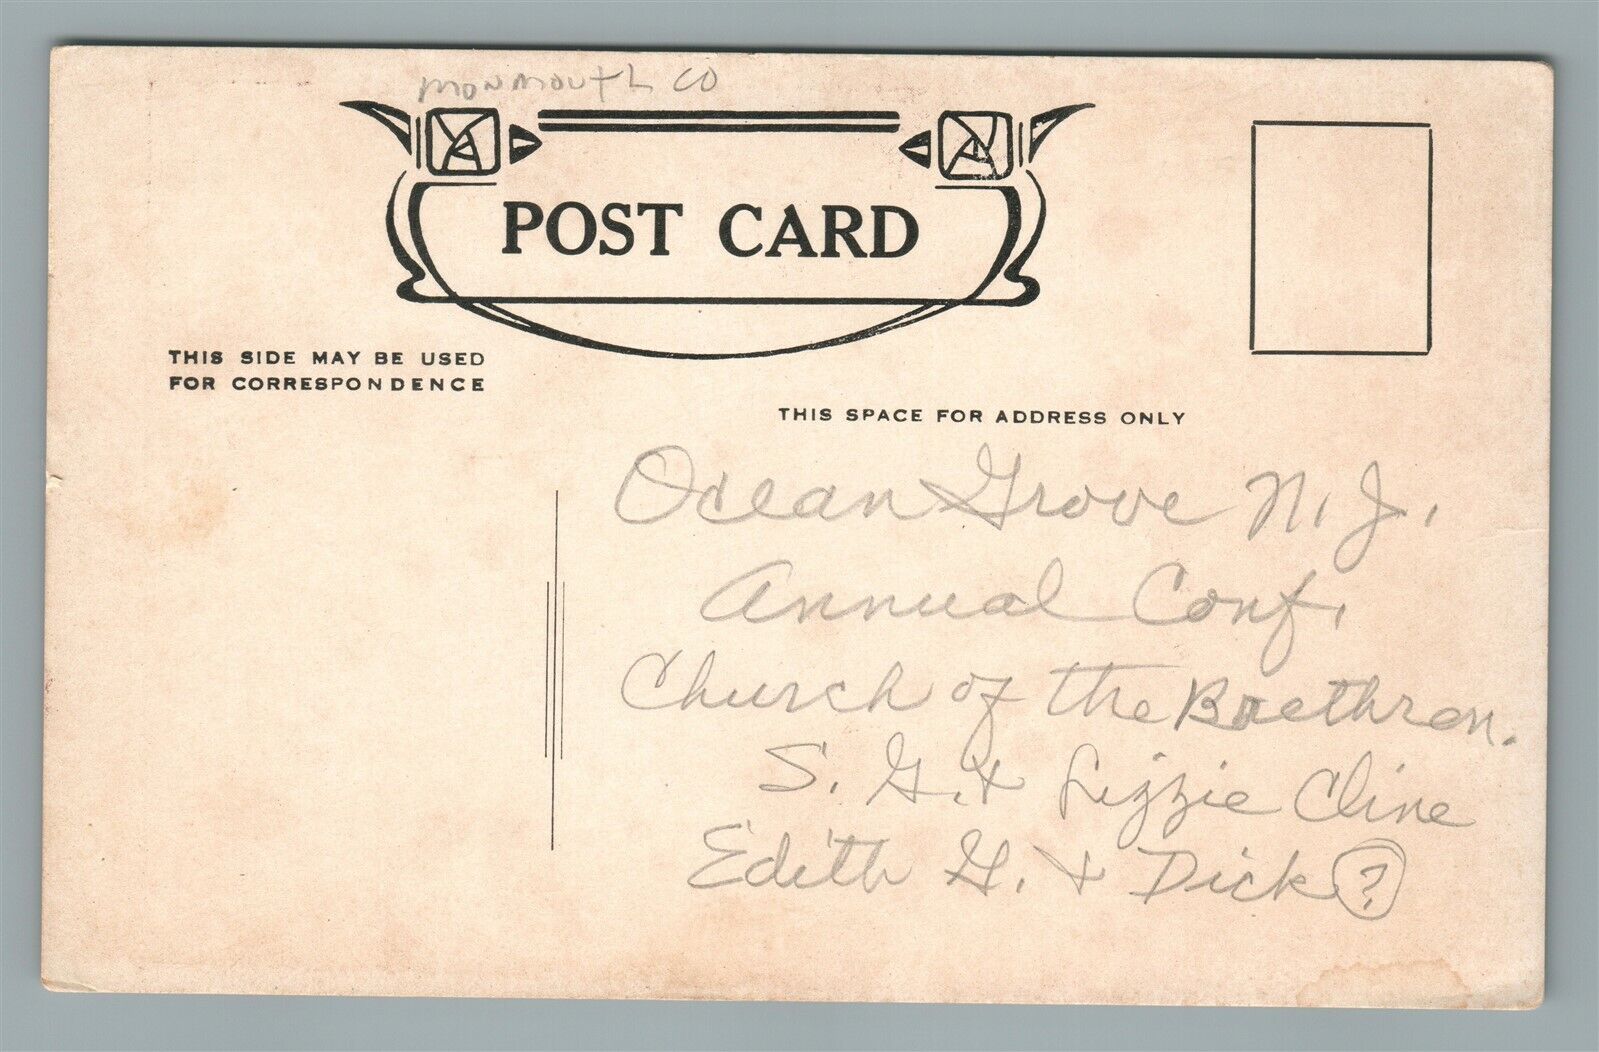 MONMOUTH CO
POST CARD
THIS SIDE MAY BE USED
FOR CORRESPONDENCE
THIS SPACE FOR ADDRESS ONLY
Ocean Grove N. J.
Annual Conf.
Church of the Brethren.
S. G. & Lizzie Cline
Edith G. & Dick ?